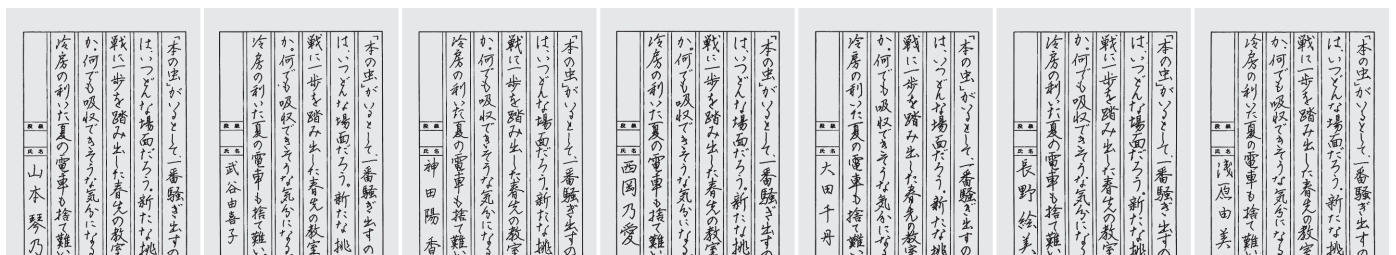 「本の虫」がいるとして、一番騒ぎ出すの
は、いつどんな場面だろう。新たな挑
戦に一歩を踏み出した春先の教室
か。何でも吸収できそうな気分になる
冷房の利いた夏の電車も捨て難い
段級
氏名 山本琴乃
「本の虫」がいるとして、一番騒ぎ出すの
は、いつどんな場面だろう。新たな挑
戦に一歩を踏み出した春先の教室
か。何でも吸収できそうな気分になる
冷房の利いた夏の電車も捨て難い
段級
氏名 武谷由喜子
「本の虫」がいるとして、一番騒ぎ出すの
は、いつどんな場面だろう。新たな挑
戦に一歩を踏み出した春先の教室
か。何でも吸収できそうな気分になる
冷房の利いた夏の電車も捨て難い
段級
氏名 神田陽香
「本の虫」がいるとして、一番騒ぎ出すの
は、いつどんな場面だろう。新たな挑
戦に一歩を踏み出した春先の教室
か。何でも吸収できそうな気分になる
冷房の利いた夏の電車も捨て難い
段級
氏名 西岡乃愛
「本の虫」がいるとして、一番騒ぎ出すの
は、いつどんな場面だろう。新たな挑
戦に一歩を踏み出した春先の教室
か。何でも吸収できそうな気分になる
冷房の利いた夏の電車も捨て難い
段級
氏名 大田千丹
「本の虫」がいるとして、一番騒ぎ出すの
は、いつどんな場面だろう。新たな挑
戦に一歩を踏み出した春先の教室
か。何でも吸収できそうな気分になる
冷房の利いた夏の電車も捨て難い
段級
氏名 長野絵美
「本の虫」がいるとして、一番騒ぎ出すの
は、いつどんな場面だろう。新たな挑
戦に一歩を踏み出した春先の教室
か。何でも吸収できそうな気分になる
冷房の利いた夏の電車も捨て難い
段級
氏名 浅原由美